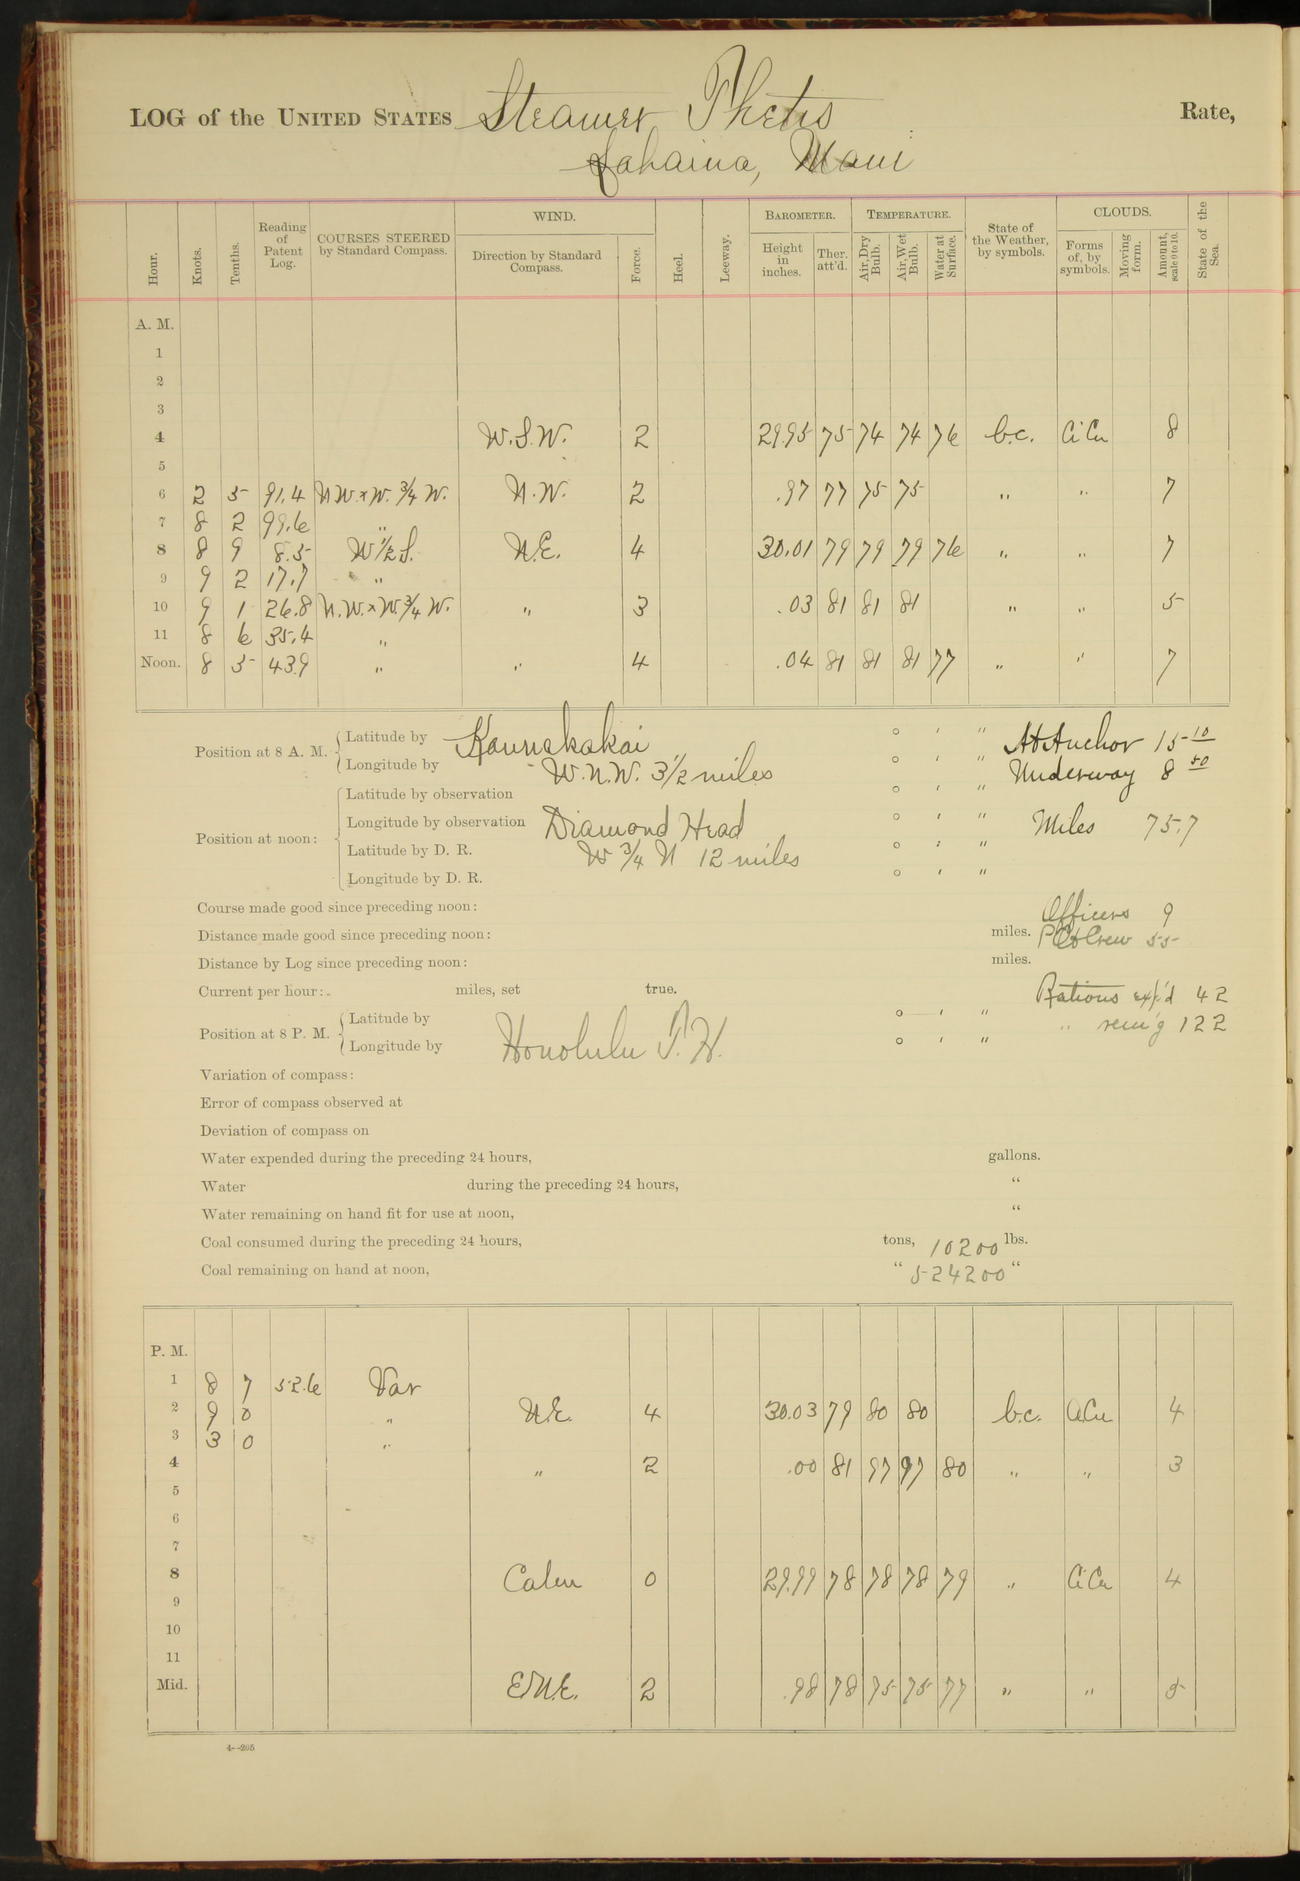 LOG of the UNITED STATES Steamer Thetis Rate,
Lahaina, Maui
Hour. Knots. Tenths. Reading of Patent Log. COURSES STEERED by Standard Compass. WIND. Direction by Standard Compass. Force. Heel. Leeway. BAROMETER. Height in inches. Ther. att'd. TEMPERATURE. Air, Dry Bulb. Air, Wet Bulb. Water at Surface. State of the Weather, by symbols. CLOUDS. Forms of, by symbols. Moving form. Amount, scale 0 to 10. State of the Sea.
A. M.
1
2
3
4 W.S.W. 2 29.95 75 74 74 76 b.c. Ci Cu 8
5
6 2 5 91.4 N.W. x W. 3/4 W. N.W. 2 .97 77 75 75 " " 7
7 8 2 99.6 "
8 8 9 8.5 W 1/2 S. N.E. 4 30.01 79 79 79 76 " " 7
9 9 2 17.7 "
10 9 1 26.8 N.W. x W. 3/4 W. " 3 .03 81 81 81 " " 5
11 8 6 35.4 "
Noon. 8 5 43.9 " " 4 .04 81 81 81 77 " " 7
Position at 8 A. M. Latitude by Kaunakakai ° ' " At Anchor 15 10
Longitude by W.N.W. 3 1/2 miles ° ' " Underway 8 50
Position at noon: Latitude by observation ° ' "
Longitude by observation Diamond Head ° ' " Miles 75.7
Latitude by D. R. W 3/4 N 12 miles ° ' "
Longitude by D. R. ° ' "
Course made good since preceding noon: Officers 9
Distance made good since preceding noon: miles. Crew 55
Distance by Log since preceding noon: miles.
Current per hour: miles, set true. Rations exp'd 42
Position at 8 P. M. Latitude by Honolulu T.H. ° ' " " rem'g 122
Longitude by ° ' "
Variation of compass:
Error of compass observed at
Deviation of compass on
Water expended during the preceding 24 hours, gallons.
Water during the preceding 24 hours, "
Water remaining on hand fit for use at noon, "
Coal consumed during the preceding 24 hours, tons, 10200 lbs.
Coal remaining on hand at noon, " 524200 "
P. M.
1 8 7 52.6 Var
2 9 0 " N.E. 4 30.03 79 80 80 b.c. Cu 4
3 3 0 "
4 " 2 .00 81 97 97 80 " " 3
5
6
7
8 Calm 0 29.99 78 78 78 79 " Ci Cu 4
9
10
11
Mid. E.N.E. 2 .98 78 75 75 77 " " 5
4--205